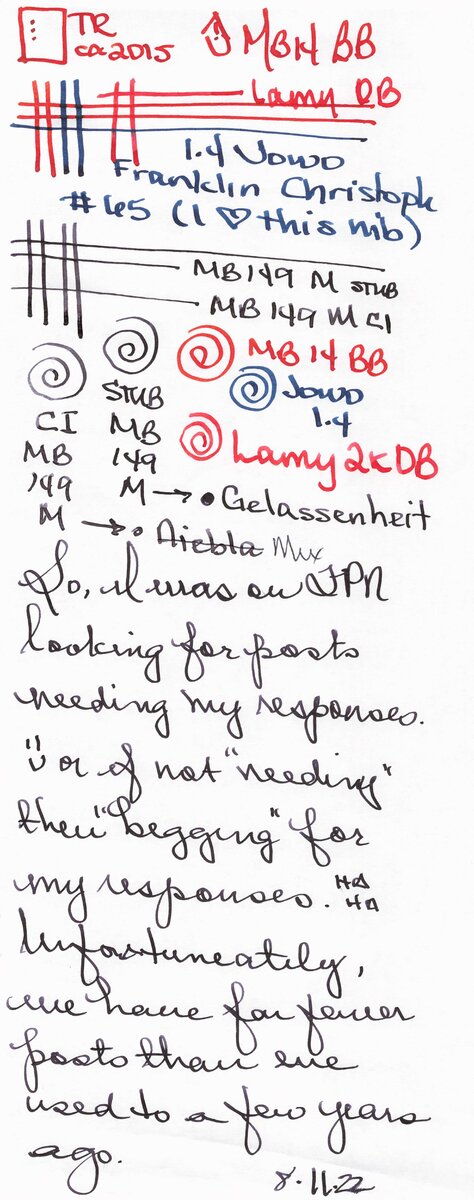 TR
ca 2015
MB14 BB
Lamy OB
1.4 Jowo
Franklin Christoph
#65 (I ♡ this nib)
MB 149 M STUB
MB 149 M CI
MB 14 BB
Jowo
1.4
Lamy 2K OB
STUB
MB
149
M → • Gelassenheit
CI
MB
149
M → • Aiebla Mix
So, I was on FPN
looking for posts
needing my responses.
or if not "needing"
then "begging" for
my responses. HA
HA
Unfortuneately,
we have far fewer
posts than we
used to a few years
ago.
8.11.22